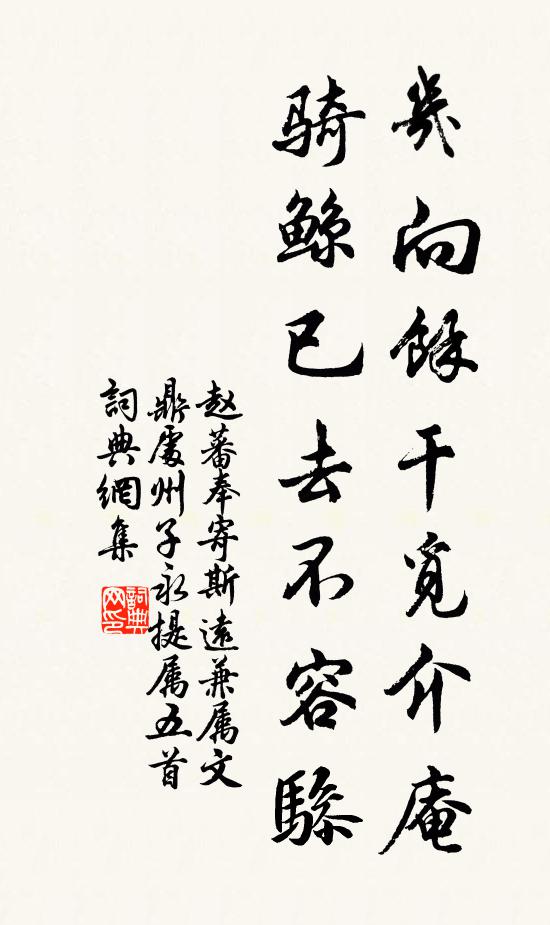 幾向餘干覓介庵
騎鲸已去不容驂
赵蕃奉寄斯遠兼属文
鼎處州子永提属五首
詞典網集
詞典网印